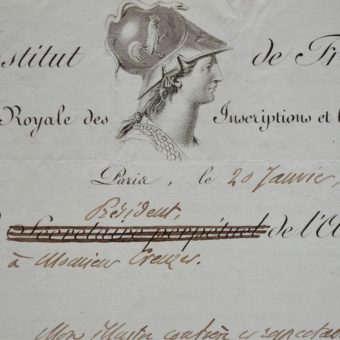 nstitut de Fr
Royale des Inscriptions et
Paris, le 20 Janvier,
Président,
Secrétaire perpétuel de l'A
à Monsieur Creuzer.
Mon illustre confrère et